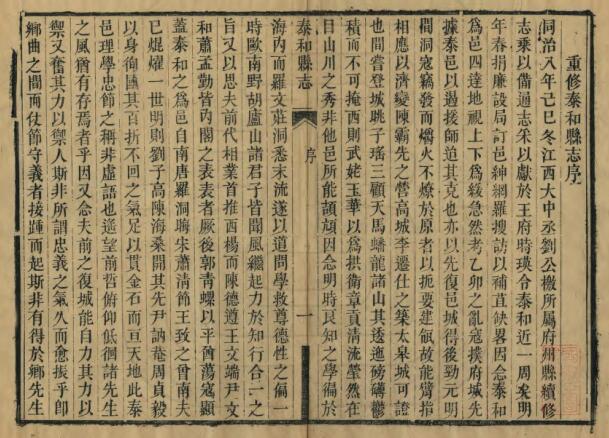 重修泰和縣志序
同治八年己巳冬江西大中丞劉公檄所屬府州縣續修
志乘以備過志朱以獻於王府時瑛令泰和近一周矣明
年春捐廉設局訂邑紳網羅搜訪以補直缺畧因念泰和
為邑四達地視上下為緩急然考乙卯之亂寇撲府城先
據泰邑以遏接師迨其克也亦以先復邑城得後勁元明
間洞寇竊發而爝火不燎於原者以扼要建瓴故能臂指
相應以濟變陳霸先之營高城李遷仕之築大皋城可證
也間嘗登城眺子瑤三顧天馬蟠龍諸山其透迤磅礴鬱
積而不可掩西則武姥玉華以為拱衛章貢清流瑩然在
目山川之秀非他邑所能頡頏因念明時良知之學徧於
泰和縣志
序
一
海內而羅文莊洞悉末流遂以道問學救尊德性之偏一
時歐南野胡廬山諸君子皆聞風繼起力於知行合一之
旨又以思夫前代相業首推西楊而陳德遵王文端尹文
和蕭孟勤皆內閣之表表者厥後郭青螺以平酋蕩寇顯
蓋泰和之為邑自南唐羅洞晦宋蕭清節王致之曾南夫
已焜燿一世明則劉子高陳海桑開其先尹訥菴周貞毅
以身徇國其百折不回之氣足以貫金石而亘天地此泰
邑理學忠節之稱非虛語也遙望前哲俯仰低徊諸先生
之風猶有存焉者乎因又念夫前之復城能自力其力以
禦又奮其力以禦人斯非所謂忠義之氣久而愈振乎即
鄉曲之間而仗節守義者接踵而起斯非有得於鄉先生